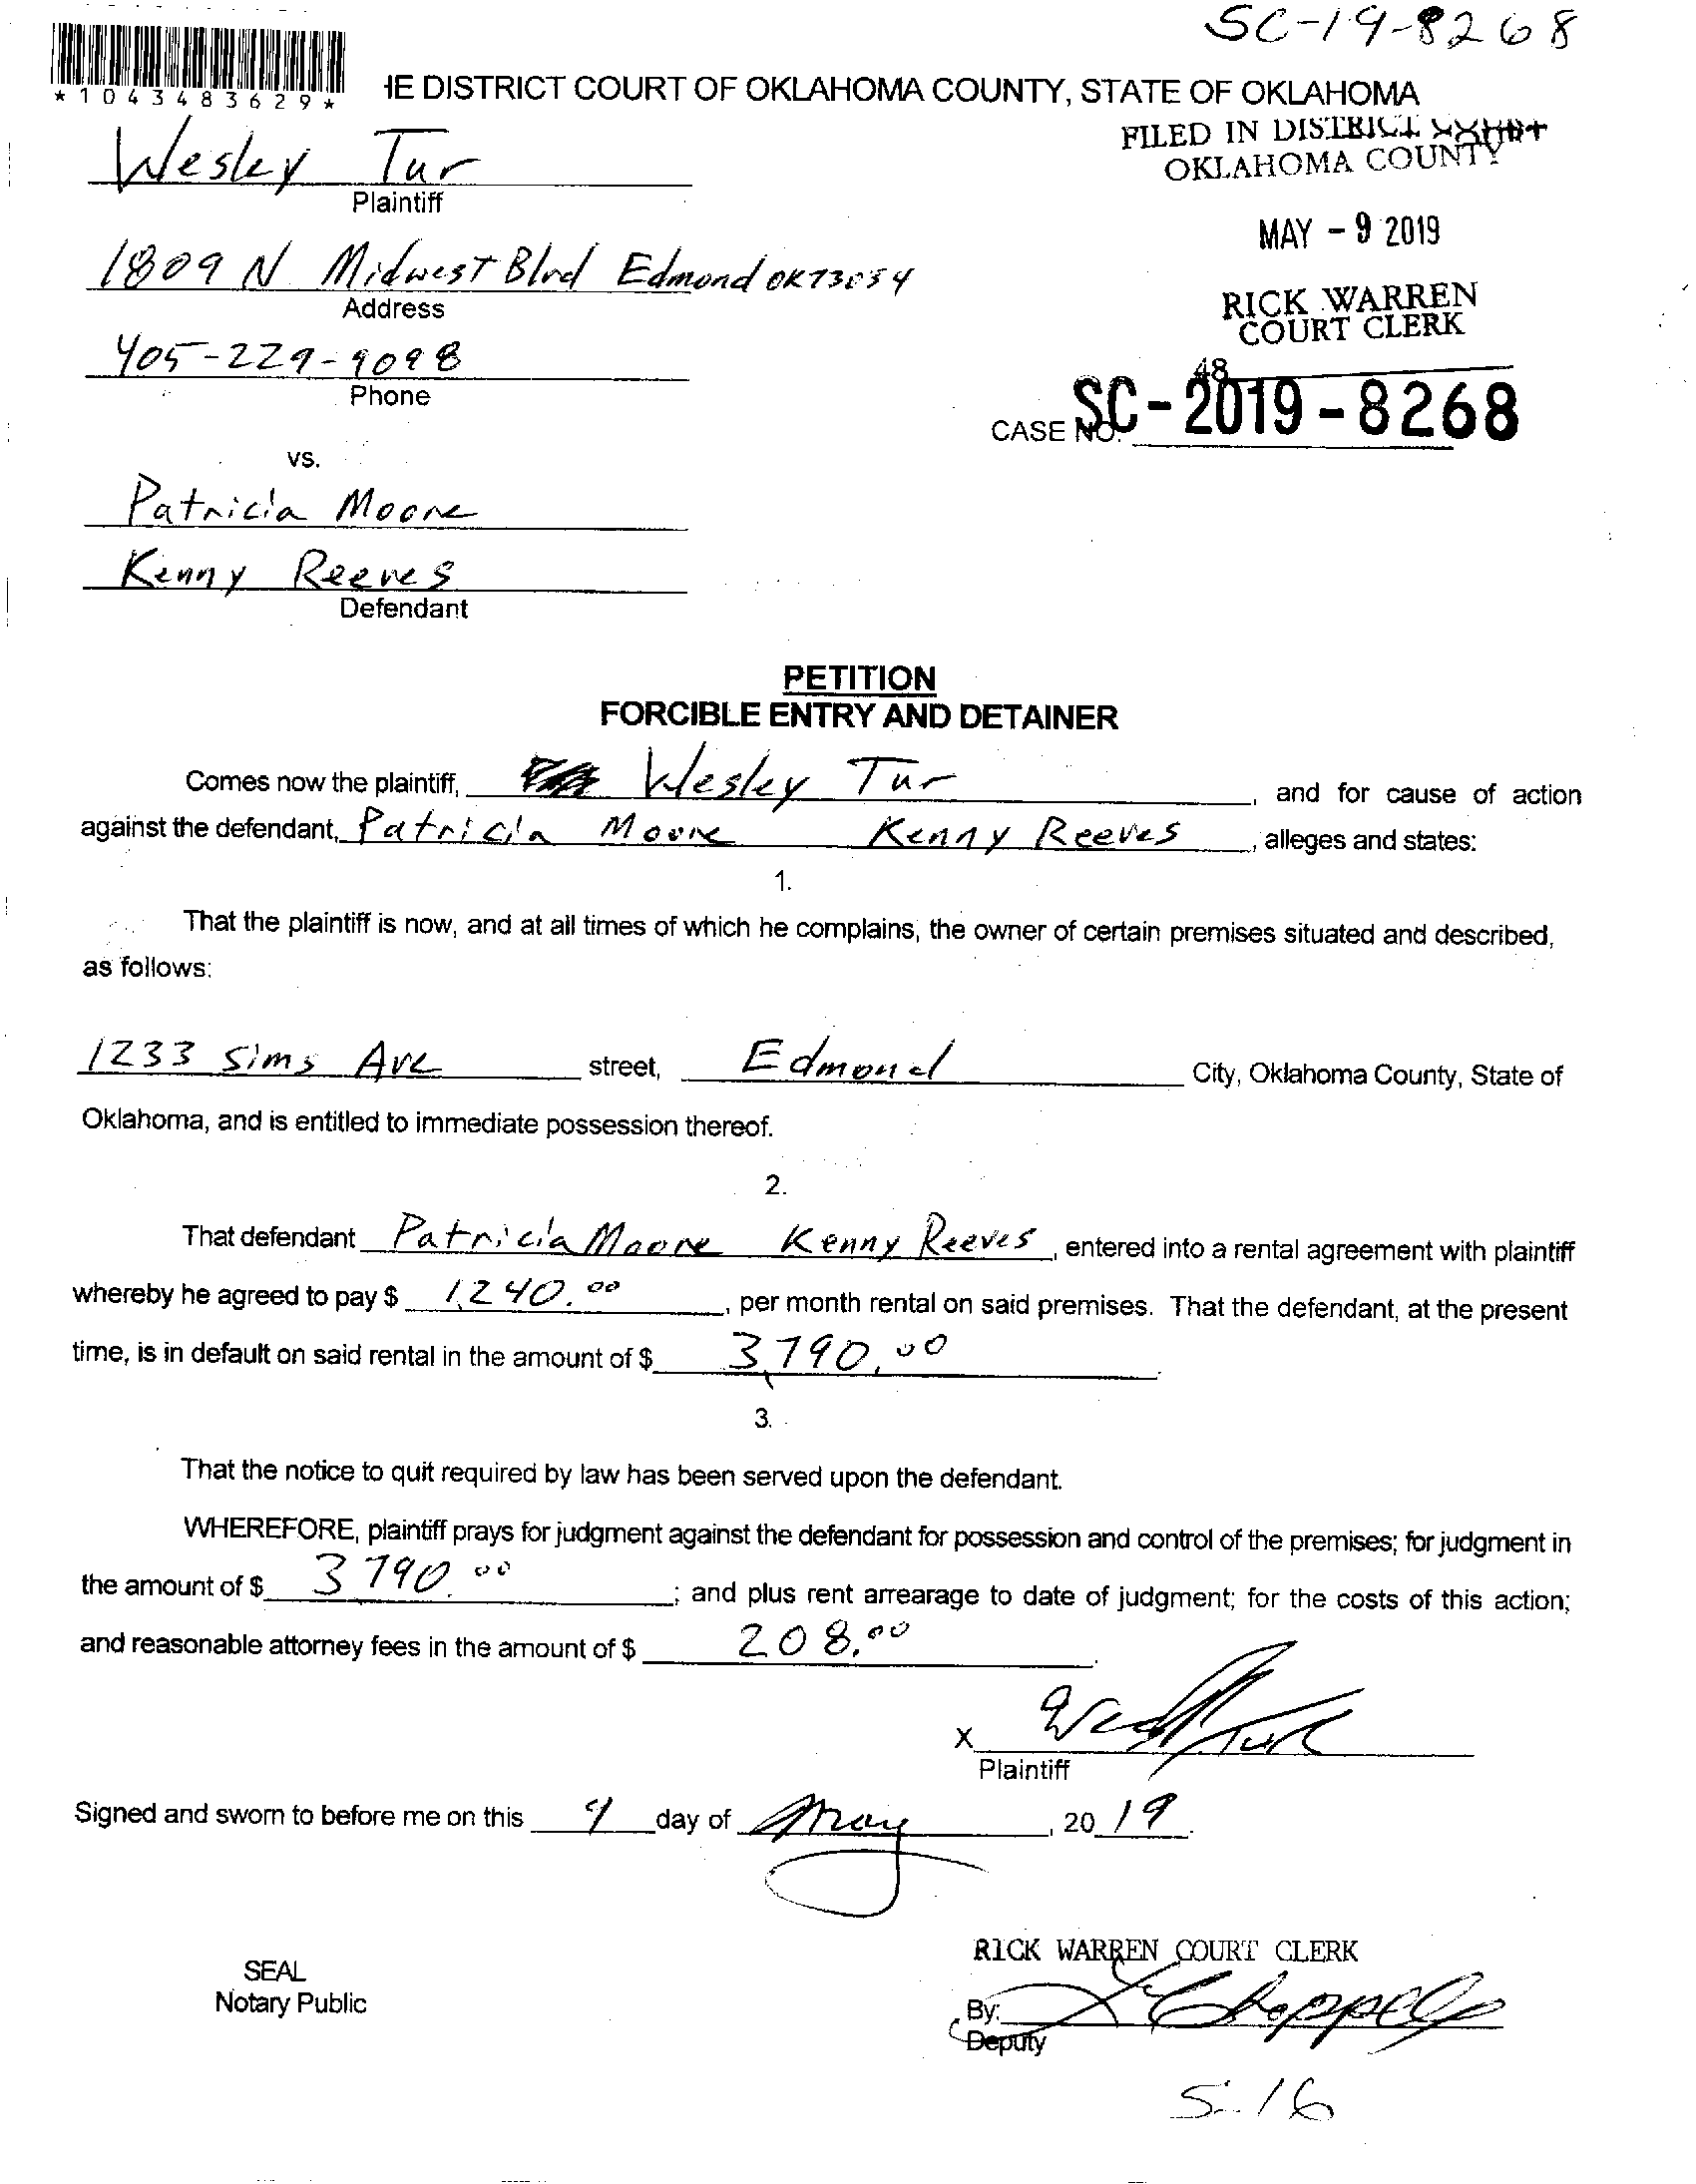 SC-19-8268
*1043483629*
HE DISTRICT COURT OF OKLAHOMA COUNTY, STATE OF OKLAHOMA
FILED IN DISTRICT COURT
OKLAHOMA COUNTY
Wesley Tur
Plaintiff
MAY - 9 2019
1809 N Midwest Blvd Edmond OK 73034
Address
RICK WARREN
COURT CLERK
405-229-9098
Phone
48
CASE NO. SC-2019-8268
vs.
Patricia Moore
Kenny Reeves
Defendant
PETITION
FORCIBLE ENTRY AND DETAINER
Comes now the plaintiff, Wesley Tur, and for cause of action
against the defendant, Patricia Moore Kenny Reeves, alleges and states:
1.
That the plaintiff is now, and at all times of which he complains, the owner of certain premises situated and described,
as follows:
1233 Sims Ave street, Edmond City, Oklahoma County, State of
Oklahoma, and is entitled to immediate possession thereof.
2.
That defendant Patricia Moore Kenny Reeves, entered into a rental agreement with plaintiff
whereby he agreed to pay $ 1,240.00, per month rental on said premises. That the defendant, at the present
time, is in default on said rental in the amount of $ 3,790.00
3.
That the notice to quit required by law has been served upon the defendant.
WHEREFORE, plaintiff prays for judgment against the defendant for possession and control of the premises; for judgment in
the amount of $ 3790.00; and plus rent arrearage to date of judgment; for the costs of this action;
and reasonable attorney fees in the amount of $ 208.00.
X
Plaintiff
Signed and sworn to before me on this 9 day of May, 2019.
RICK WARREN COURT CLERK
SEAL
Notary Public
By:
Deputy
5-16